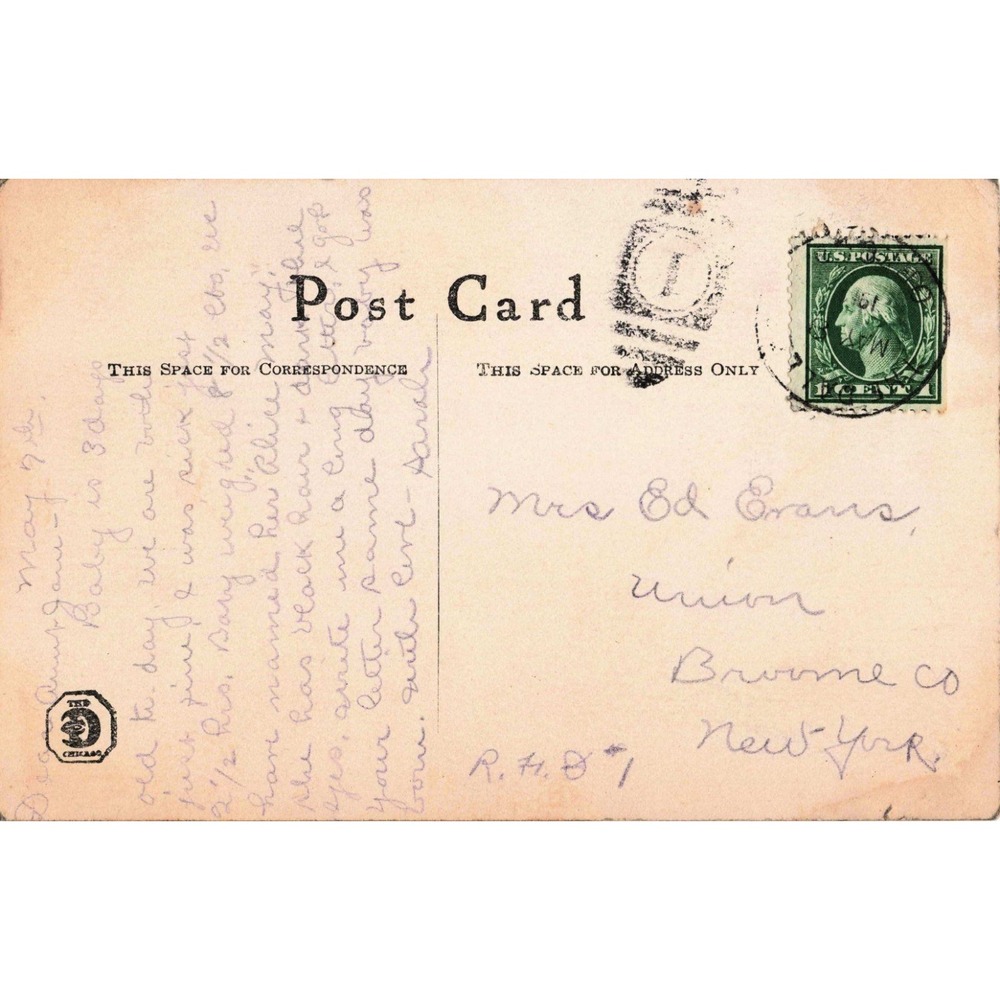 Post Card
THIS SPACE FOR CORRESPONDENCE
THIS SPACE FOR ADDRESS ONLY
U.S. POSTAGE
1 CENT 1
1
MAY
May 7th.
Dear Aunt Jane-
Baby is 3 days
old to day, we are both
just fine, I was sick just
2 1/2 hrs. Baby weighed 9 1/2 lbs, we
have named her Alice May,
she has black hair & dark blue
eyes, write me a long letter, I got
your letter same day baby was
born. with love - Sarah
Mrs Ed Evans,
Union
Broome Co
New York.
R.F.D #1
THE
CHICAGO